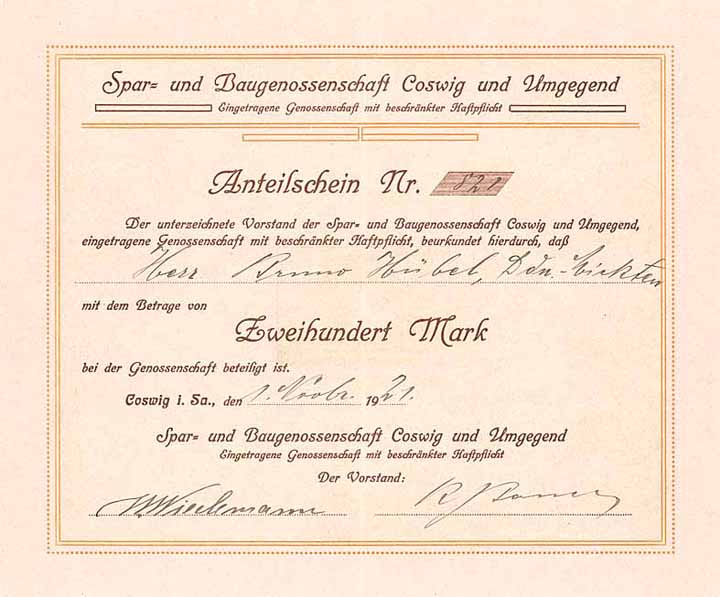 Spar= und Baugenossenschaft Coswig und Umgegend
Eingetragene Genossenschaft mit beschränkter Haftpflicht
Anteilschein Nr. 821
Der unterzeichnete Vorstand der Spar= und Baugenossenschaft Coswig und Umgegend,
eingetragene Genossenschaft mit beschränkter Haftpflicht, beurkundet hierdurch, daß
Herr Bruno Hübel, Ddn.-Mickten
mit dem Betrage von
Zweihundert Mark
bei der Genossenschaft beteiligt ist.
Coswig i. Sa., den 1. Novbr. 1921.
Spar= und Baugenossenschaft Coswig und Umgegend
Eingetragene Genossenschaft mit beschränkter Haftpflicht
Der Vorstand: